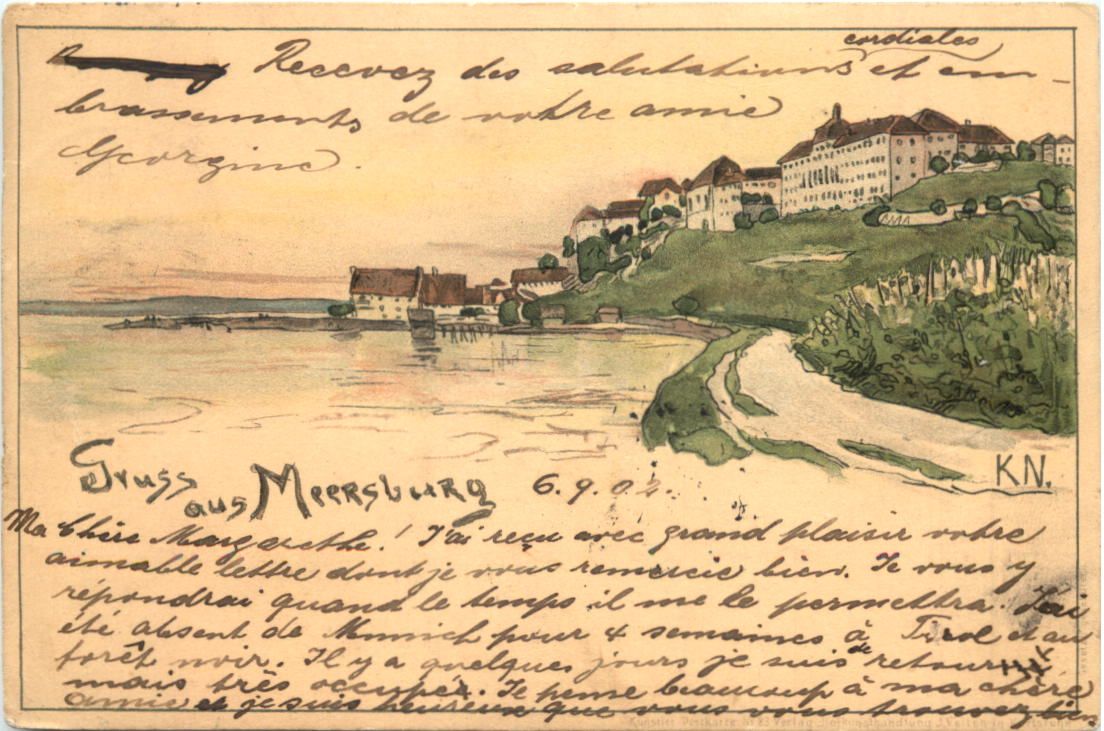 cordiales
Recevez des salutations et em-
brassements de votre amie
Georgine.
KN.
Gruss
aus Meersburg 6.9.02.
Ma chère Margarethe! J'ai reçu avec grand plaisir votre
aimable lettre dont je vous remercie bien. Je vous y
répondrai quand le temps il me le permettra. J'ai
été absent de Munich pour 4 semaines à Tirol et au
forêt noir. Il y a quelques jours je suis de retour
mais très occupée. Je pense beaucoup à ma chère
amie et je suis heureuse que vous vous trouvez bien
Künstler Postkarte No 83 Verlag Hofkunsthandlung J. Velten in Karlsruhe